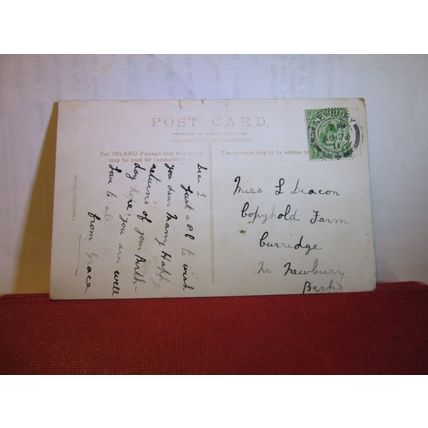 POST CARD.
PRINTED IN GREAT BRITAIN
For INLAND Postage only this
may be used for communication
The Address only to be written
NEWBURY
Dear L
Just a P.C to wish
you dear Many Happy
returns of your Birth-
day hope you are well
Love to all
from Grace
Miss L Deacon
Copyhold Farm
Curridge
Nr Newbury
Berks